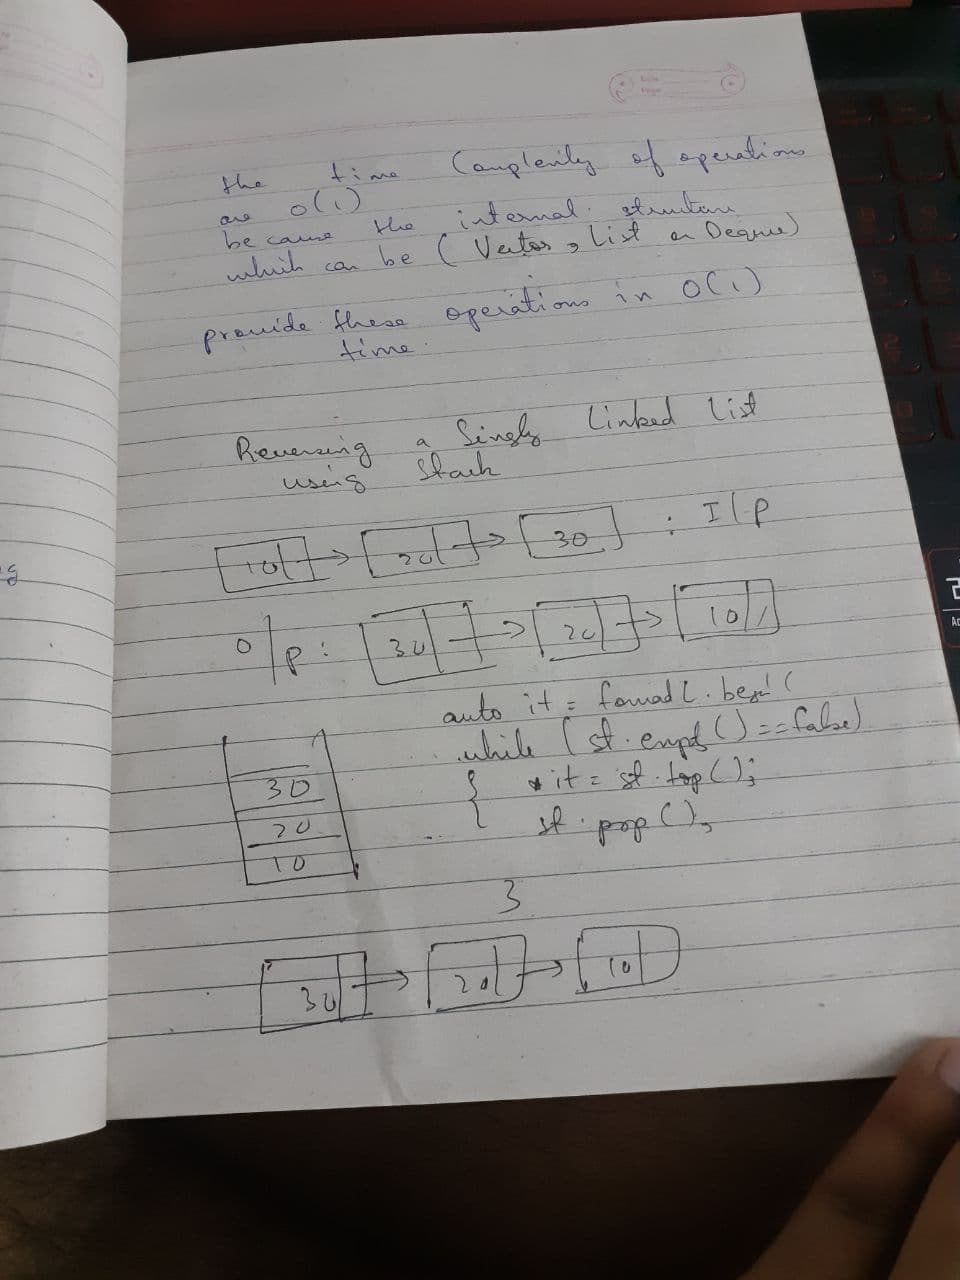 the time Complexity of operations
are O(1)
because the internal structure
which can be ( Vector, List or Deque)
provide these operations in O(1)
time.
Reversing a Singly Linked List
using Stack
10 → 20 → 30 : I/P
O/P : 30 → 20 → 10
auto it =
while (st.empt() == false)
{ *it = st.top();
30
st.pop();
20
10
}
30 → 20 → 10